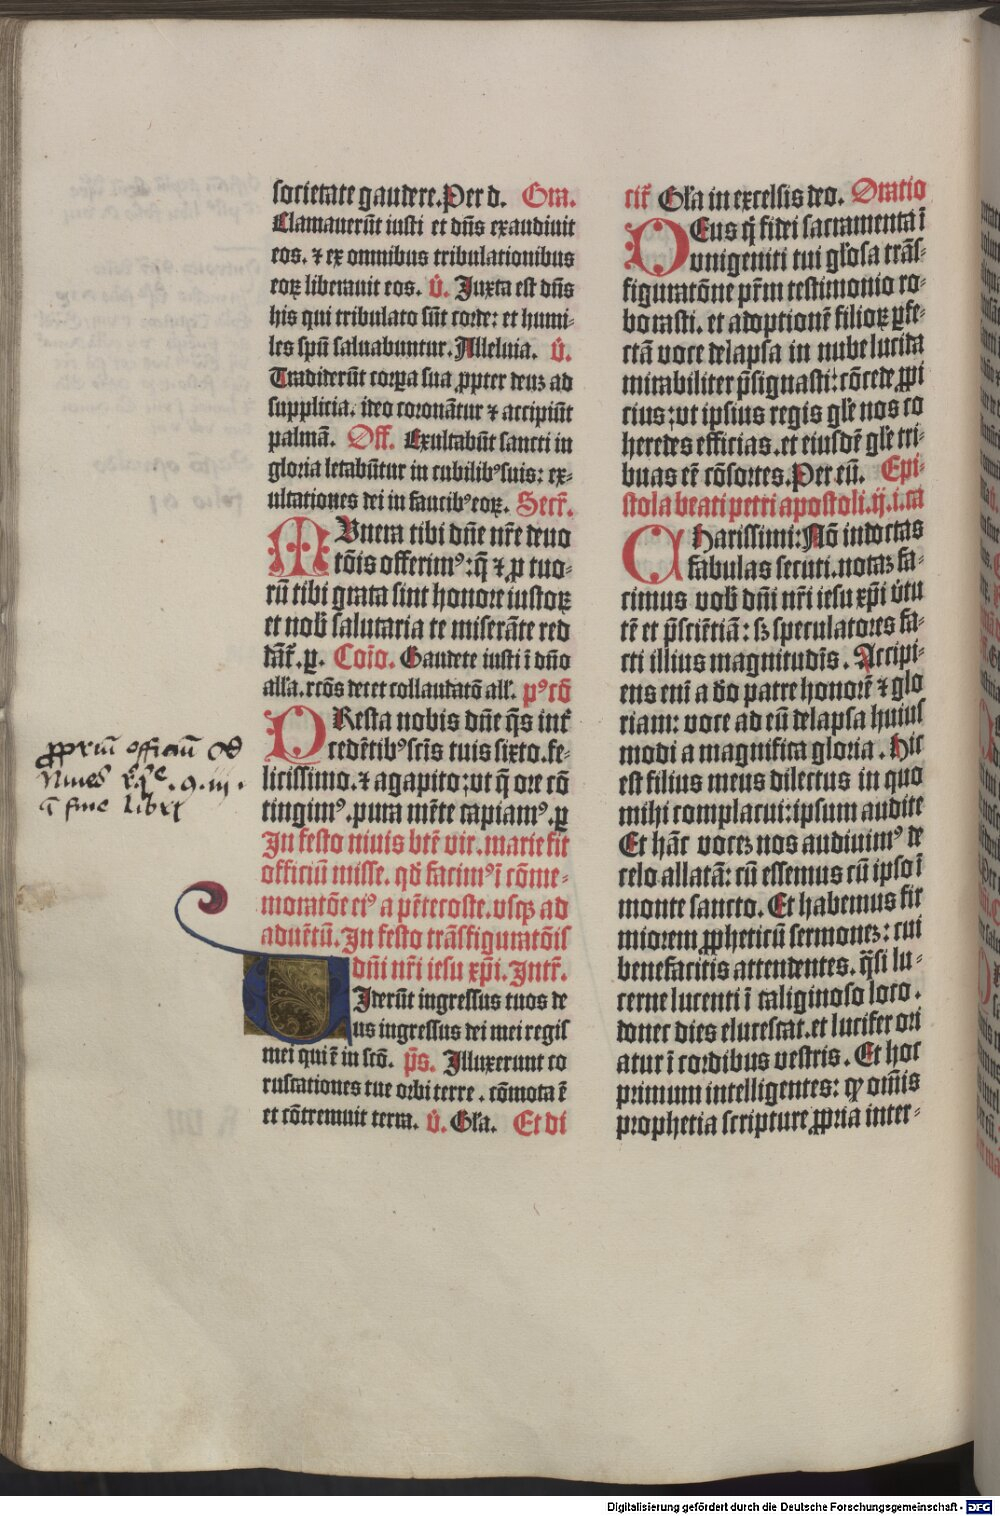 societate gaudere. Per d. Gra.
Clamauerũt iusti et dñs exaudiuit
eos. ⁊ ex omnibus tribulationibus
eoꝝ liberauit eos. v̾. Juxta est dñs
his qui tribulato sũt corde: et humi-
les spũ saluabuntur. Alleluia. v̾.
Tradiderũt corꝑa sua ꝓpter deuȝ ad
supplicia. ideo coronãtur ⁊ accipiũt
palmã. Off. Exultabũt sancti in
gloria letabũtur in cubilibꝰ suis: ex-
ultationes dei in faucibꝰ eoꝝ. Secr̃.
MVnera tibi dñe nr̃e deuo
tõis offerimꝰ: q̃ ⁊ ꝓ tuo-
rũ tibi grata sint honore iustoꝝ
et nob̾ salutaria te miserãte red
dãt̃. ꝑ. Cõio. Gaudete iusti ĩ dño
alľa. rcõs decet collaudatõ all̾. pꝰcõ
PResta nobis dñe q̃s int̃
cedẽtibꝰ scĩs tuis sixto. fe-
licissimo. ⁊ agapito: vt q̃ ore cõ
tingimꝰ. pura mẽte capiamꝰ. ꝑ
In festo niuis btẽ vir. marie fit
officiũ misse. qď facimꝰ ĩ cõme-
moratõe eiꝰ a pẽtecoste. vsqꝫ ad
aduẽtũ. In festo trãsfiguratõis
dñi nr̃i iesu xp̃i. Intr̃.
VIderũt ingressus tuos de
us ingressus dei mei regis
mei qui ẽ in scõ. p̃s. Illuxerunt co
ruscationes tue orbi terre. cõmota ẽ
et cõtremuit terra. v̾. Glľa. Et di
 propriũ officiũ
in fine libri
cit̃ Glľa in excelsis deo. Oratio
DEus q̃ fidei sacramenta ĩ
vnigeniti tui glľosa trãs-
figuratõne pr̃m testimonio ro-
borasti. et adoptionẽ filioꝝ ꝑfe-
ctã voce delapsa in nube lucida
mirabiliter p̃signasti: cõcede ꝓpi
cius: vt ipsius regis glľe nos co
heredes efficias. et eiusdẽ glľe tri-
buas eẽ cõsortes. Per eũ. Epi-
stola beati petri apostoli. ij. i. ca
CHarissimi: Nõ indoctas
fabulas secuti. notaȝ fa-
cimus vob̾ dñi nr̃i iesu xp̃i v̾tu
tẽ et p̃sciẽtiã: sȝ speculatores fa-
cti illius magnitudĩs. Accipi-
ens eni᷒ a ďo patre honorẽ ⁊ glo
riam: voce ad eũ delapsa huius
modi a magnifica gloria. Hic
est filius meus dilectus in quo
mihi complacui: ipsum audite
Et hãc voceȝ nos audiuimꝰ de
celo allatã: cũ essemus cũ ipso ĩ
monte sancto. Et habemus fir
miorem ꝓpheticũ sermoneȝ: cui
benefacitis attendentes. q̃si lu-
cerne lucenti ĩ caliginoso loco.
donec dies elucescat. et lucifer ori
atur ĩ cordibus vestris. Et hoc
primum intelligentes: ꝙ oms̃
prophetia scripture ꝓpria inter-
Digitalisierung gefördert durch die Deutsche Forschungsgemeinschaft - DFG